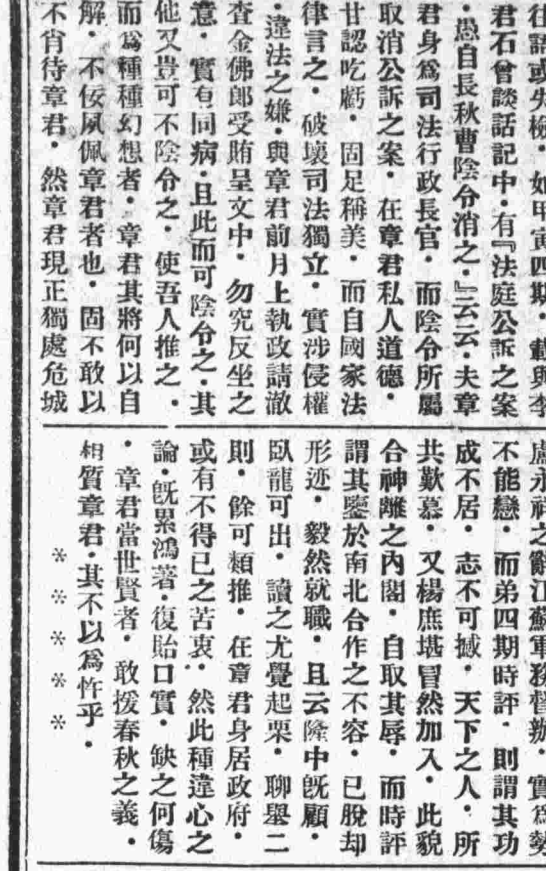 往語或失檢．如甲寅四期．載與李
君石曾談話記中．有『法庭公訴之案
．愚自長秋曹陰令消之．』云云．夫章
君身爲司法行政長官．而陰令所屬
取消公訴之案．在章君私人道德．
甘認吃虧．固足稱美．而自國家法
律言之．破壞司法獨立．實涉侵權
．違法之嫌．與章君前月上執政請澈
查金佛郎受賄呈文中．勿究反坐之
意．實有同病．且此而可陰令之．其
他又豈可不陰令之．使吾人推之．
而爲種種幻想者．章君其將何以自
解．不佞夙佩章君者也．固不敢以
不肖待章君．然章君現正獨處危城
盧永祥之辭江蘇軍務督辦．實爲勢
不能戀．而弟四期時評．則謂其功
成不居．志不可撼．天下之人．所
共歎慕．又楊庶堪冒然加入．此貌
合神離之內閣．自取其辱．而時評
謂其鑒於南北合作之不容．已脫却
形迹．毅然就職．且云隆中旣顧．
臥龍可出．讀之尤覺起栗．聊舉二
則．餘可類推．在章君身居政府．
或有不得已之苦衷．然此種違心之
論．旣累鴻著．復貽口實．缺之何傷
．章君當世賢者．敢援春秋之義．
相質章君．其不以爲忤乎．
＊＊＊＊＊